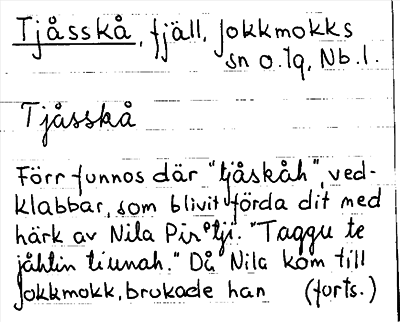 Tjåsskå, fjäll, Jokkmokks
sn o. lq, Nb. l.
Tjåsskå
Förr funnos där "tjåskåh", ved-
klabbar, som blivit förda dit med
härk av Nila Pir°tji. "Taggu te
jåhtin tiunah." Då Nila kom till
Jokkmokk, brukade han (forts.)